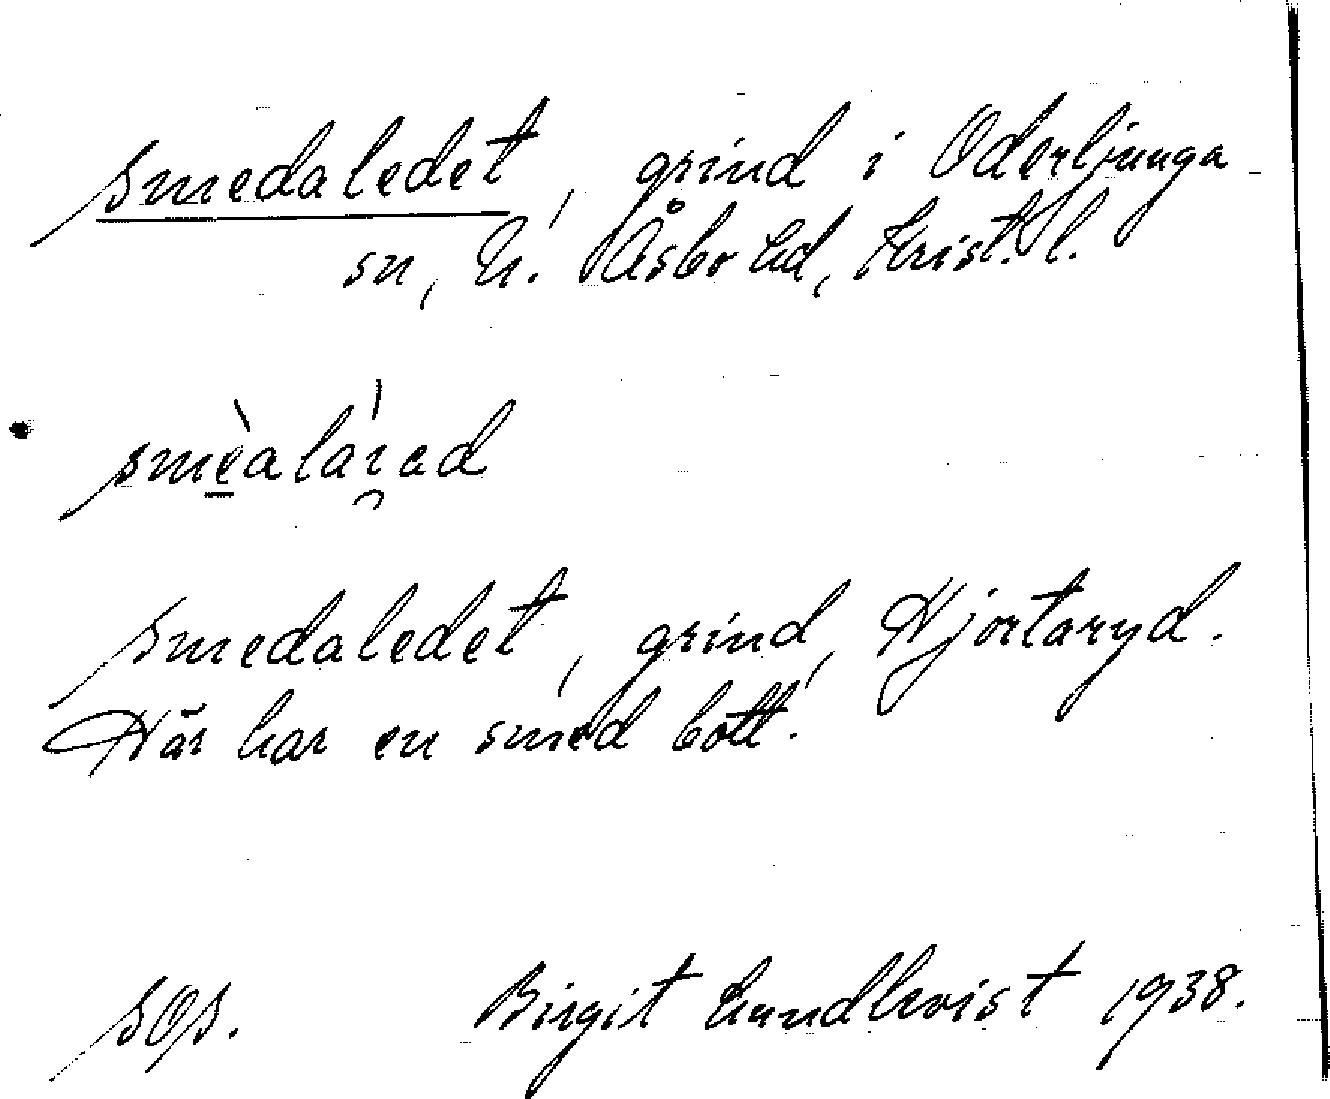 Smedaledet, grind i Oderljunga
sn, N. Åsbo hd, Krist. l.
smèalàıad
Smedaledet, grind, Hjortaryd.
Här har en smed bott.
SOS. Birgit Lundkvist 1938.